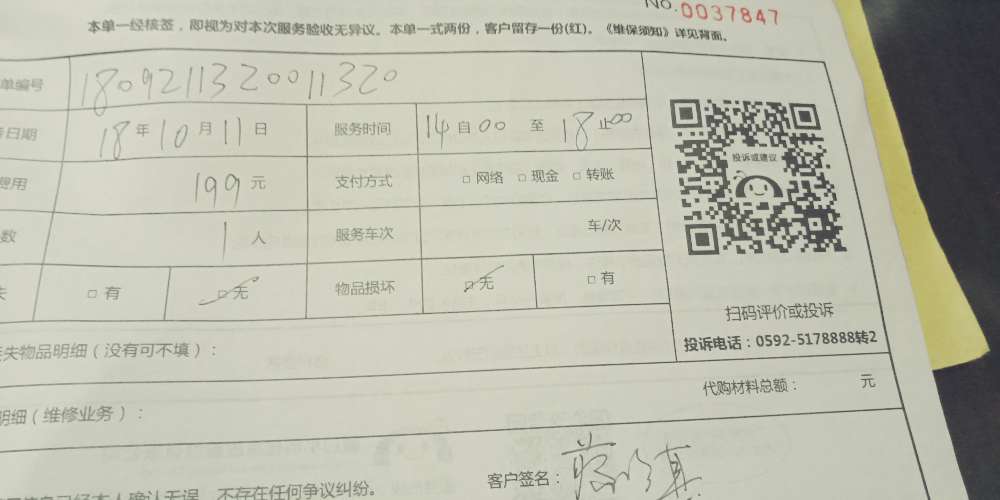 No.0037847
本单一经核签，即视为对本次服务验收无异议。本单一式两份，客户留存一份(红)。《维保须知》详见背面。
单编号 180921132001132​0
务日期 18 年 10 月 11 日 服务时间 14 自 00 至 18 止 00
费用 199 元 支付方式 □ 网络 □ 现金 □ 转账
数 1 人 服务车次 车/次
失 □ 有 □ 无 物品损坏 □ 无 □ 有
投诉或建议
扫码评价或投诉
投诉电话：0592-5178888转2
丢失物品明细（没有可不填）：
代购材料总额： 元
明细（维修业务）：
客户签名：
信息已经本人确认无误，不存在任何争议纠纷。